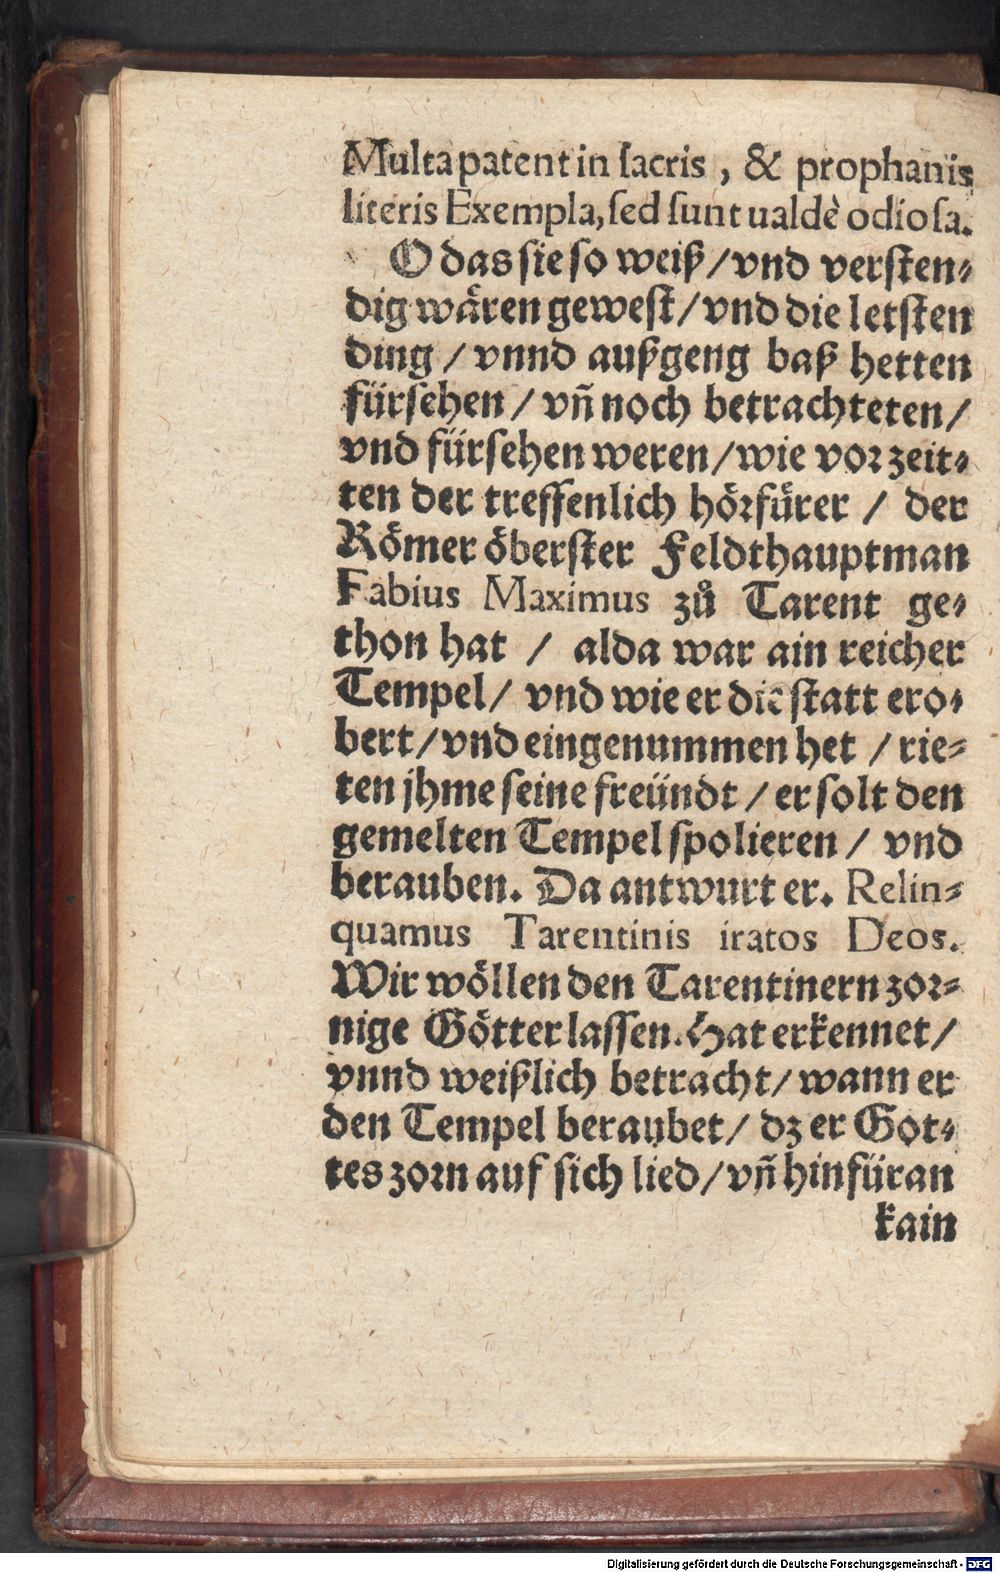 Multa patent in sacris, & prophanis
literis Exempla, sed sunt ualdè odiosa.
O das sie so weiß / vnd versten⸗
dig wären gewest / vnd die letsten
ding / vnnd außgeng baß hetten
fürsehen / vñ noch betrachteten /
vnd fürsehen weren / wie vor zeit⸗
ten der treffenlich hörfürer / der
Römer öberster Feldthauptman
Fabius Maximus zů Tarent ge⸗
thon hat / alda war ain reicher
Tempel / vnd wie er die statt ero⸗
bert / vnd eingenummen het / rie⸗
ten jhme seine freündt / er solt den
gemelten Tempel spolieren / vnd
berauben. Da antwurt er. Relin⸗
quamus Tarentinis iratos Deos.
Wir wöllen den Tarentinern zor⸗
nige Götter lassen. Hat erkennet /
vnnd weißlich betracht / wann er
den Tempel beraubet / dz er Got⸗
tes zorn auf sich lied / vñ hinfüran
kain
Digitalisierung gefördert durch die Deutsche Forschungsgemeinschaft - DFG